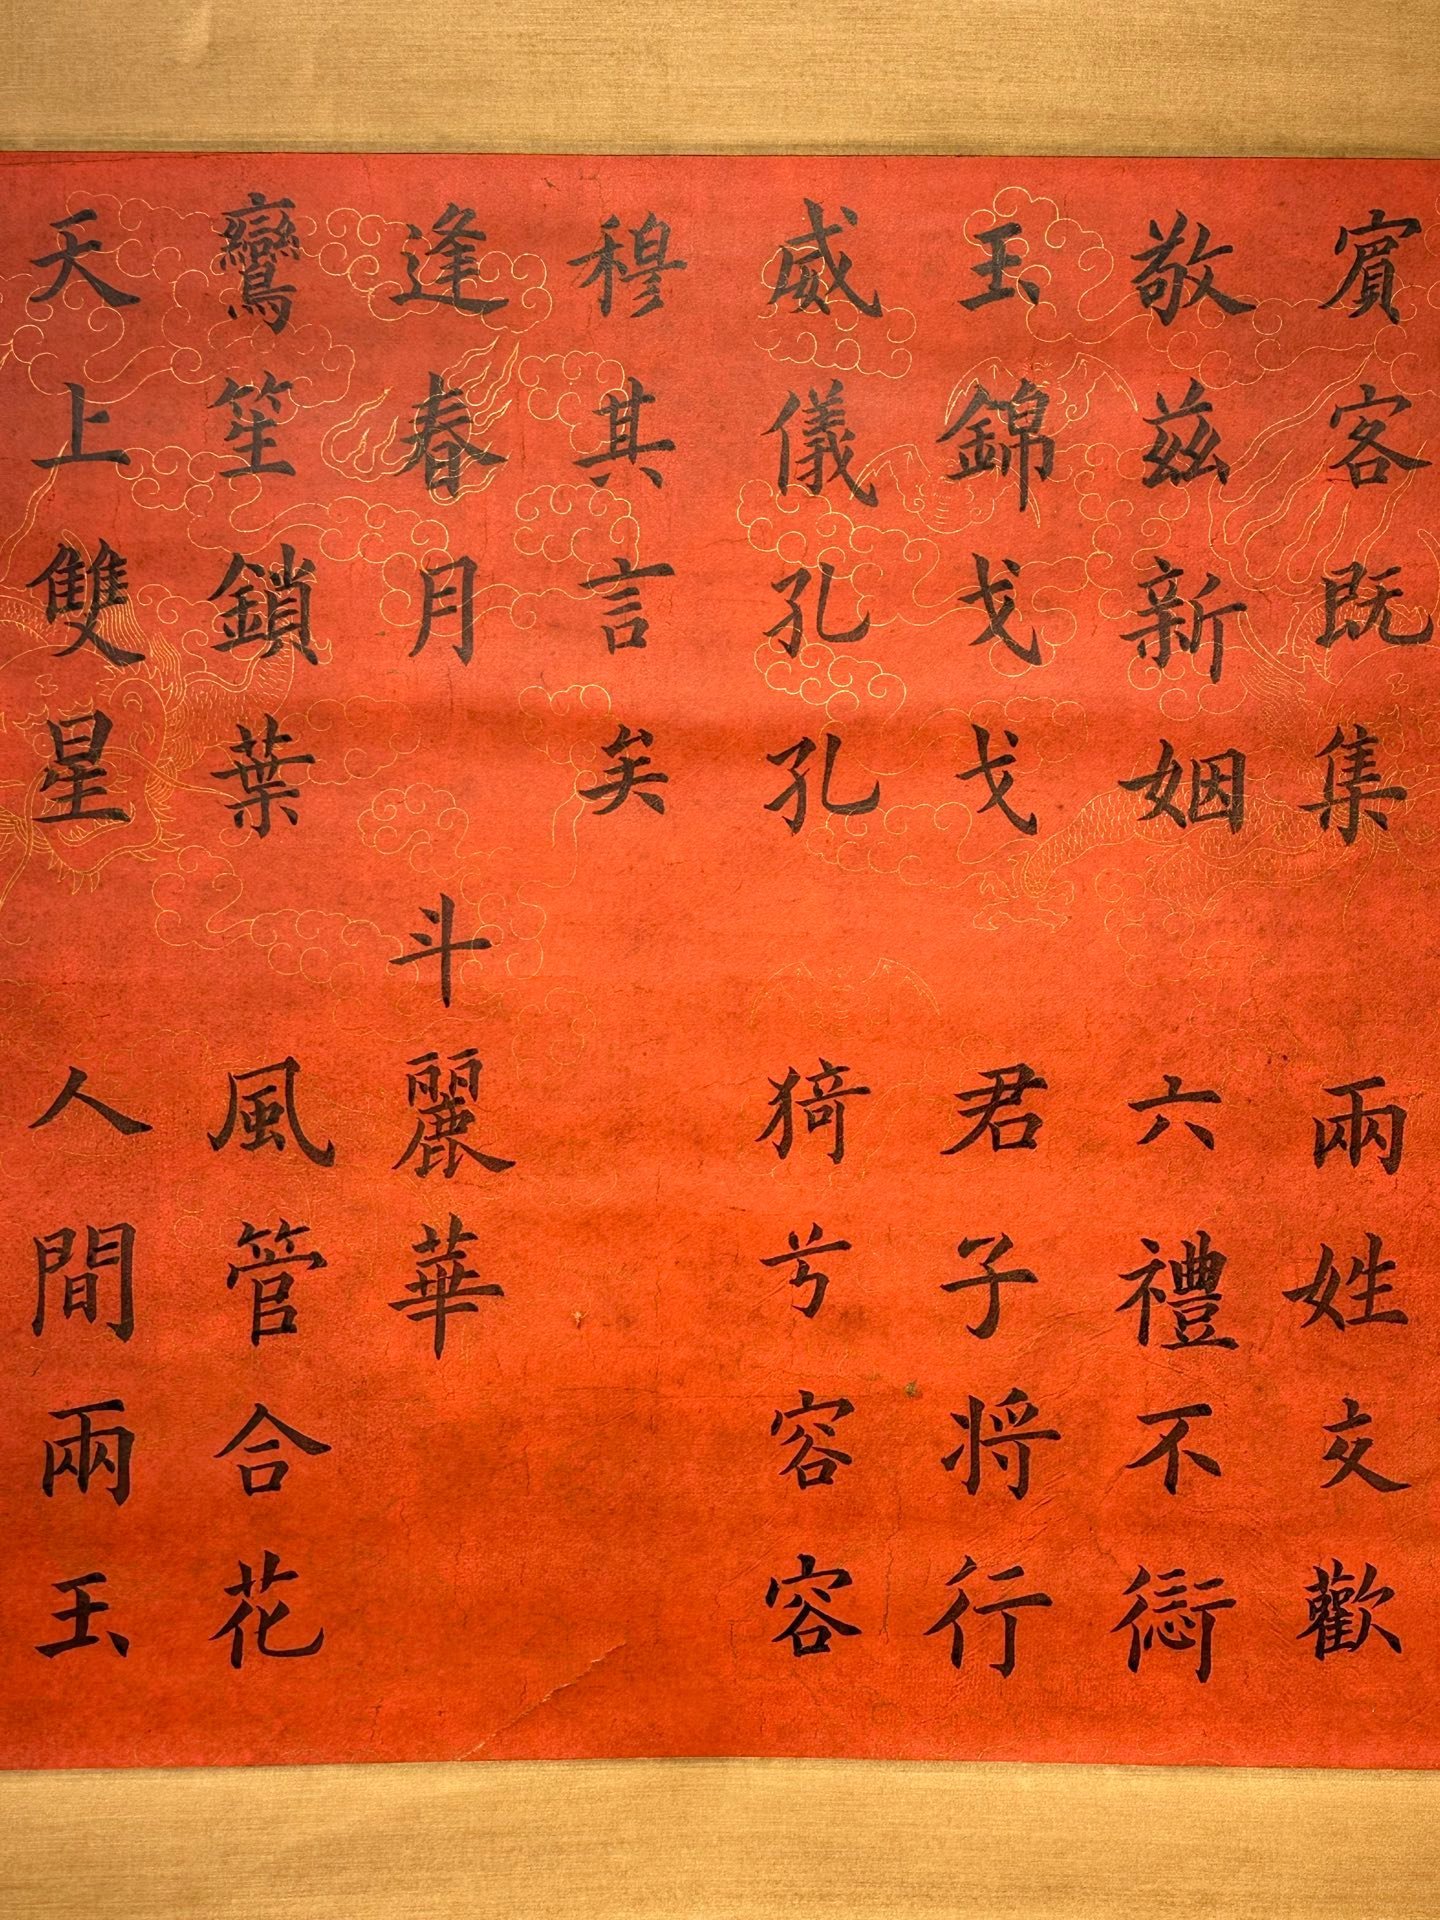 賓客既集 兩姓交歡
敬茲新姻 六禮不愆
玉錦戈戈 君子将行
威儀孔孔 猗兮容容
穆其言矣
逢春月 斗麗華
鸞笙鎖葉 風管合花
天上雙星 人間兩玉